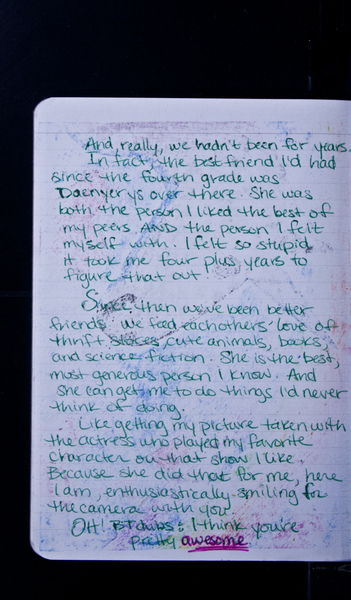 And, really, we hadn't been for years.
In fact, the best friend I'd had
since the fourth grade was
Daenyerys over there. She was
both the person I liked the best of
my peers AND the person I felt
myself with. I felt so stupid
it took me four plus years to
figure that out
Since then we've been better
friends. We feed eachothers' love of
thrift stores, cute animals, books,
and science fiction. She is the best,
most generous person I know. And
she can get me to do things I'd never
think of doing.
Like getting my picture taken with
the actress who played my favorite
character on that show I like.
Because she did that for me, here
I am, enthusiastically smiling for
the camera with you.
OH! BTdubs: I think you're
pretty awesome